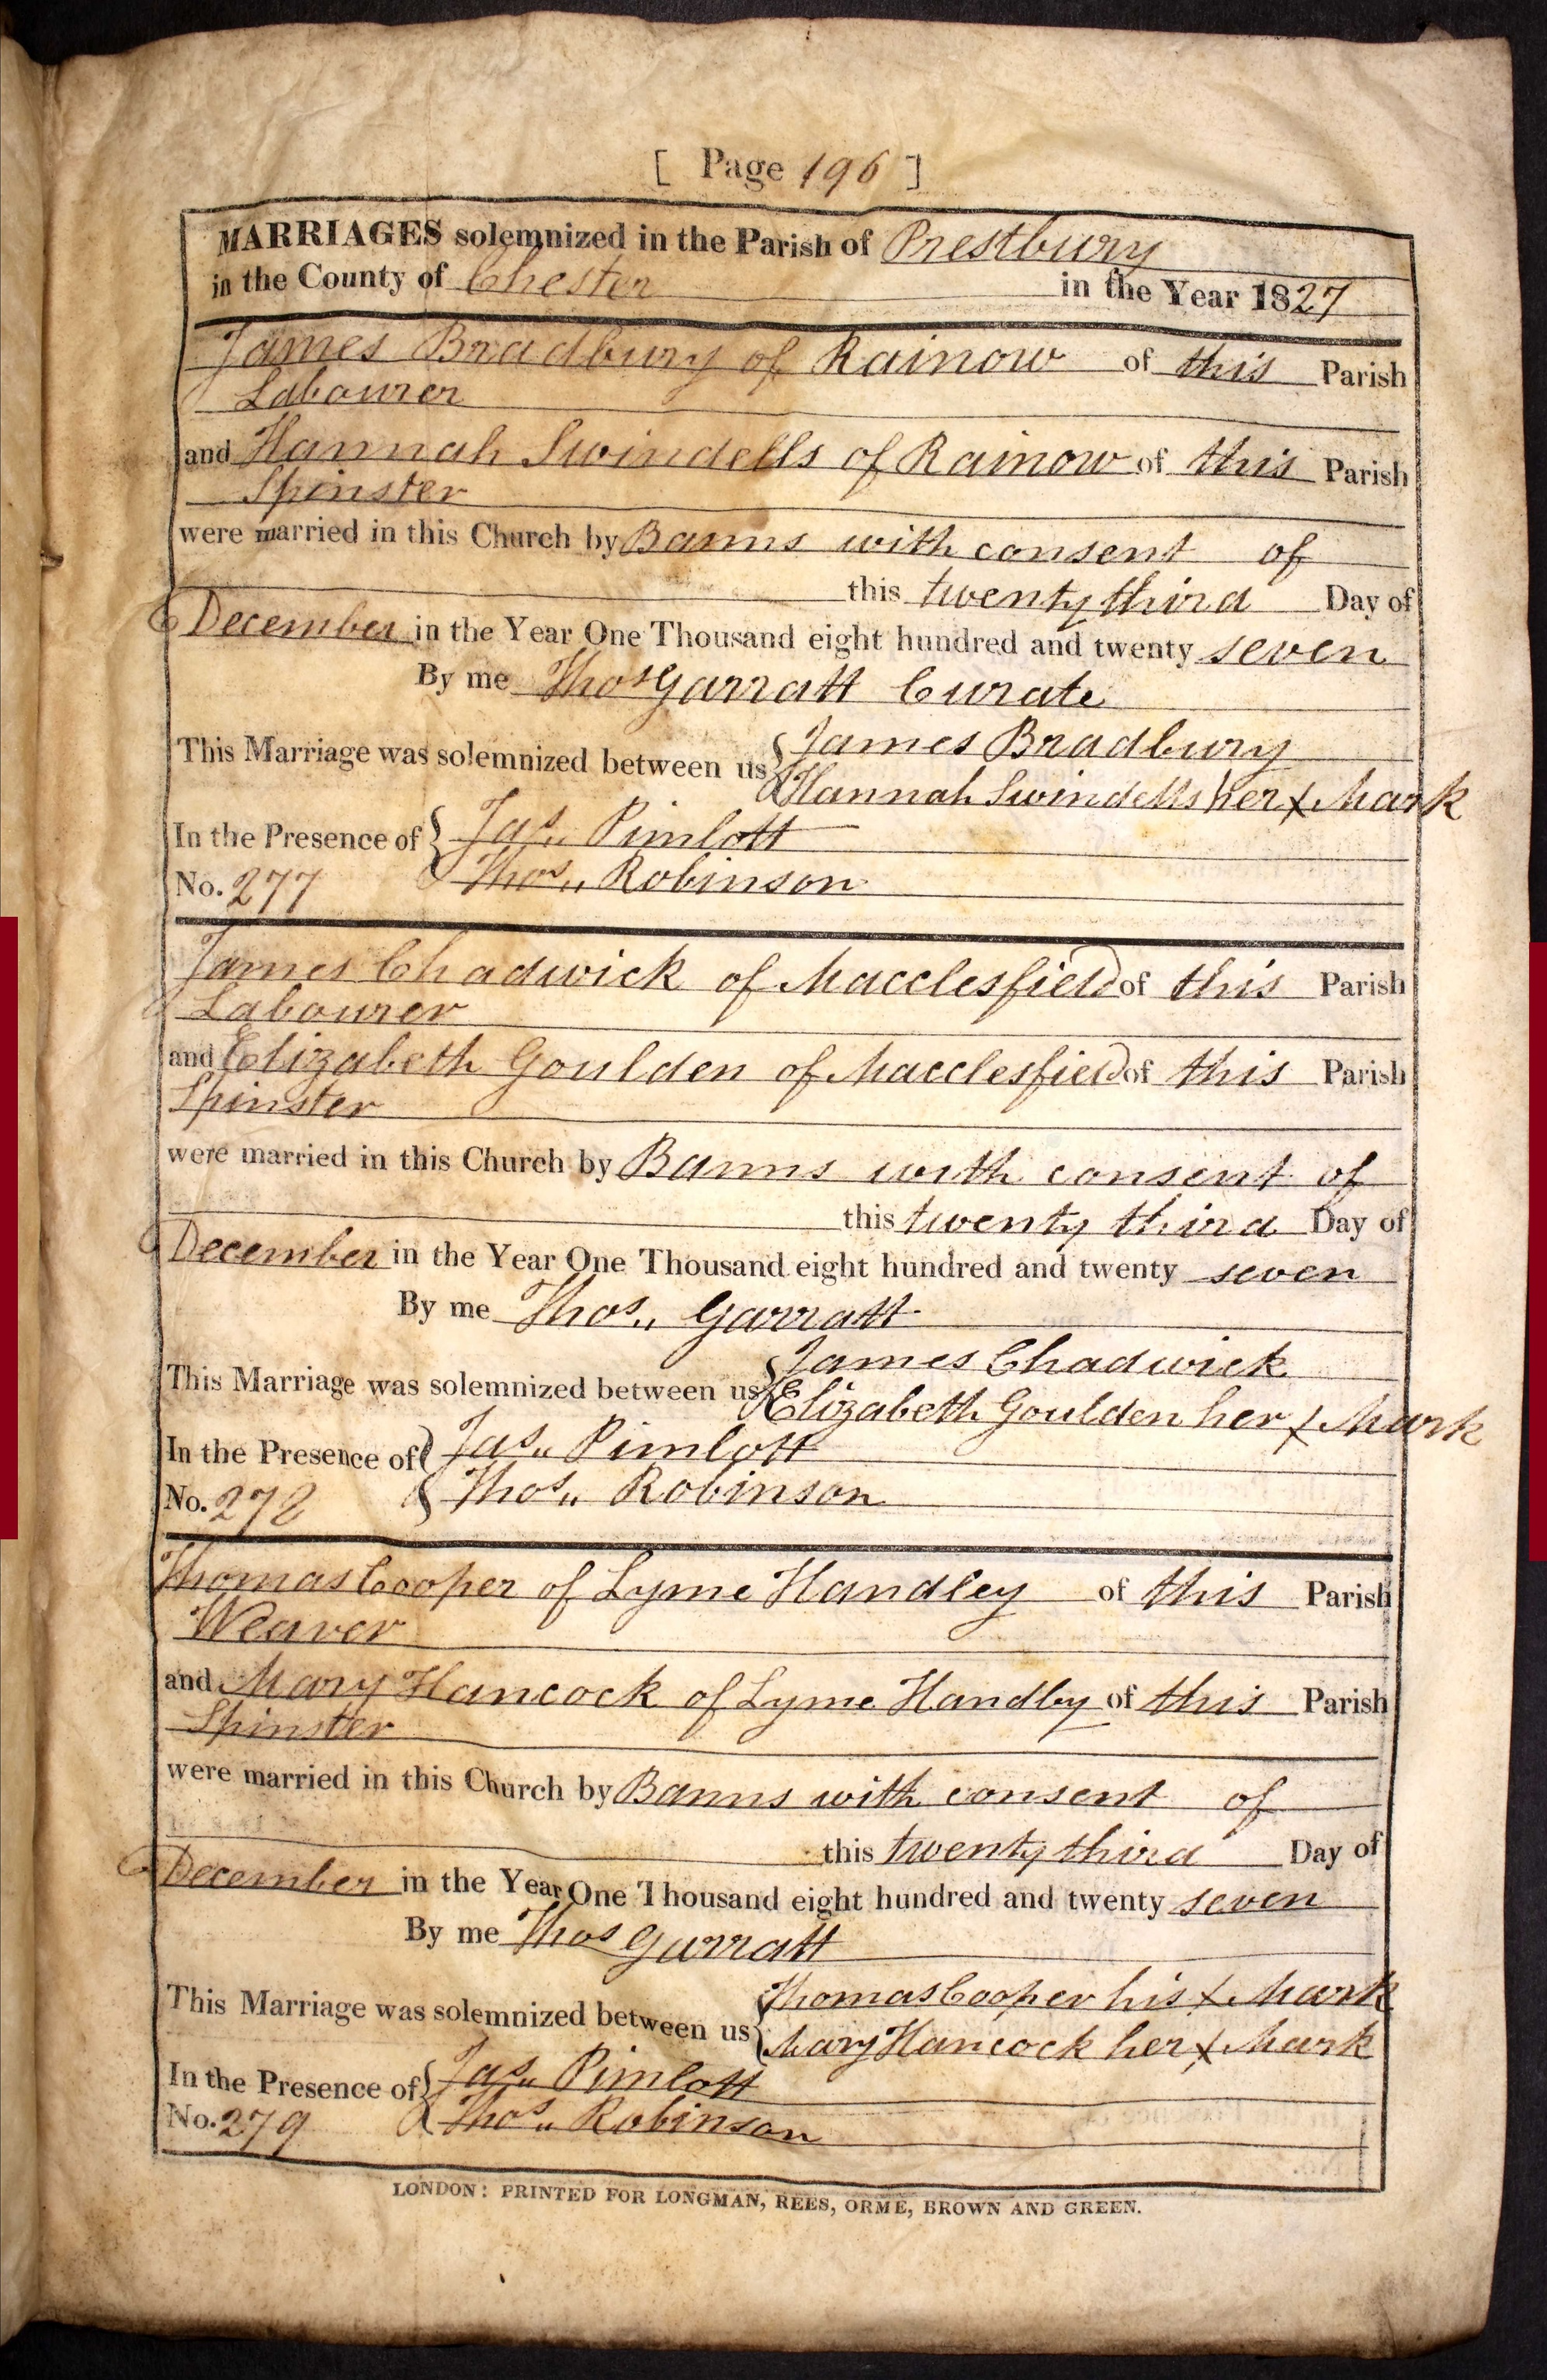 [ Page 196 ]
MARRIAGES solemnized in the Parish of Prestbury
in the County of Chester in the Year 1827
James Bradbury of Rainow of this Parish
Labourer
and Hannah Swindells of Rainow of this Parish
Spinster
were married in this Church by Banns with consent of
this twenty third Day of
December in the Year One Thousand eight hundred and twenty seven
By me Thos Garratt Curate
This Marriage was solemnized between us { James Bradbury
Hannah Swindells her x Mark
In the Presence of { Jas,, Pimlott
No. 277 Thos,, Robinson
James Chadwick of Macclesfield of this Parish
Labourer
and Elizabeth Goulden of Macclesfield of this Parish
Spinster
were married in this Church by Banns with consent of
this twenty third Day of
December in the Year One Thousand eight hundred and twenty seven
By me Thos,, Garratt
This Marriage was solemnized between us { James Chadwick
Elizabeth Goulden her x Mark
In the Presence of { Jas,, Pimlott
No. 278 Thos,, Robinson
Thomas Cooper of Lyme Handley of this Parish
Weaver
and Mary Hancock of Lyme Handley of this Parish
Spinster
were married in this Church by Banns with consent of
this twenty third Day of
December in the Year One Thousand eight hundred and twenty seven
By me Thos Garratt
This Marriage was solemnized between us { Thomas Cooper his x Mark
Mary Hancock her x Mark
In the Presence of { Jas,, Pimlott
No. 279 Thos,, Robinson
LONDON: PRINTED FOR LONGMAN, REES, ORME, BROWN AND GREEN.